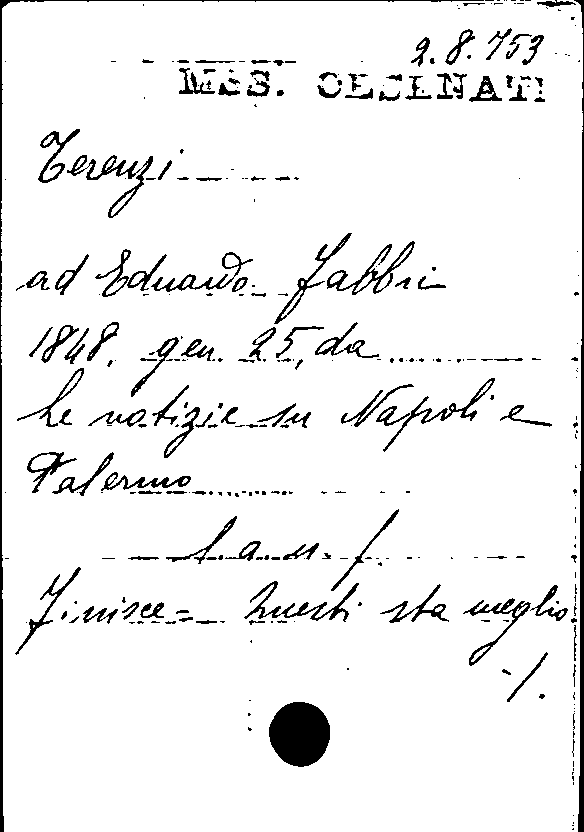 2.8.753
MSS. CESENATI
Terenzi
ad Eduardo Fabbri
1848, gen. 25, da
Le notizie su Napoli e
Palermo
l. a. n. f.
Finisce = Questi sta meglio
-/.